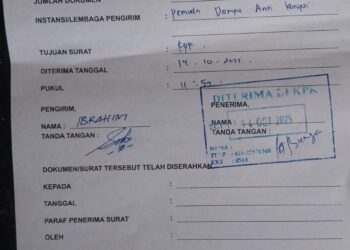 JUMLAH DOKUMEN :
INSTANSI/LEMBAGA PENGIRIM : Pemuda Dompu Anti Korupsi
TUJUAN SURAT : KPK
DITERIMA TANGGAL : 14.10.2025
PUKUL : 11.59
PENGIRIM, PENERIMA,
DITERIMA DI KPK
NAMA : IBRAHIM NAMA : 14 OCT 2025
TANDA TANGAN : TANDA TANGAN :
DOKUMEN/SURAT TERSEBUT TELAH DISERAHKAN
KEPADA :
TANGGAL :
PARAF PENERIMA SURAT :
OLEH :